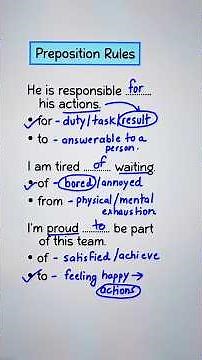 Preposition Rules
He is responsible for
his actions.
• for - duty/task/result
• to - answerable to a
person.
I am tired of waiting.
• of - bored/annoyed
• from - physical/mental
exhaustion
I'm proud to be part
of this team.
• of - satisfied/achieve
• to - feeling happy →
actions